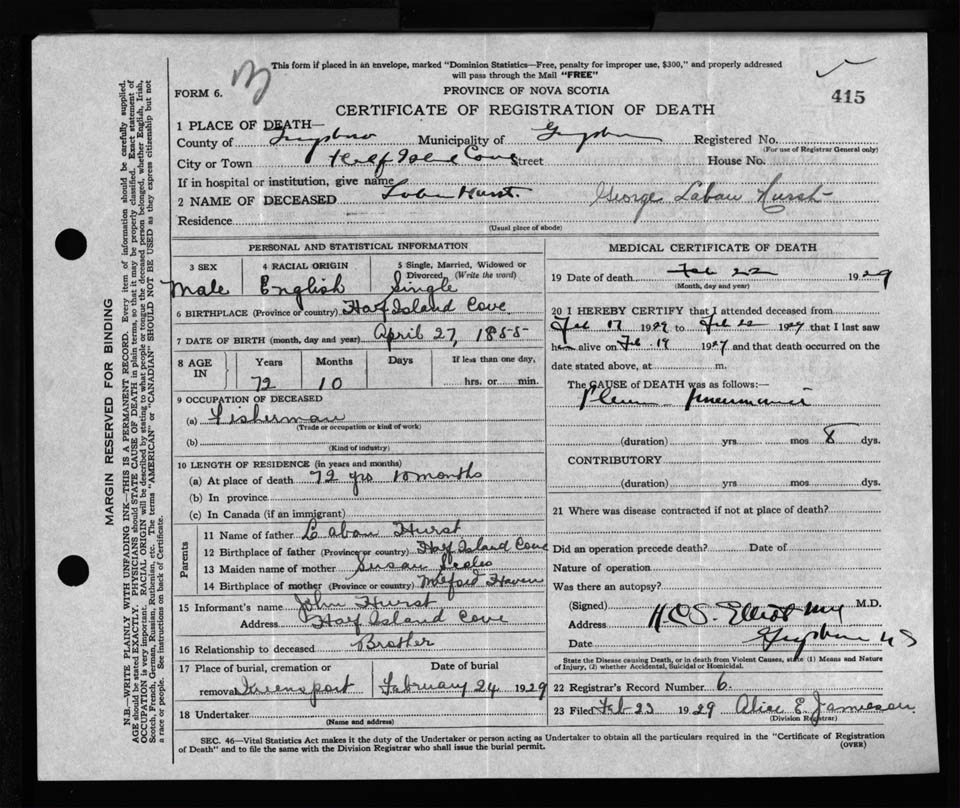 This form if placed in an envelope, marked "Dominion Statistics—Free, penalty for improper use, $300," and properly addressed
will pass through the Mail "FREE"
FORM 6.
PROVINCE OF NOVA SCOTIA
415
CERTIFICATE OF REGISTRATION OF DEATH
1 PLACE OF DEATH—
County of Municipality of Registered No.
(For use of Registrar General only)
City or Town Half Island Cove Street House No.
If in hospital or institution, give name
2 NAME OF DECEASED Laban Hurst George Laban Hurst
Residence
(Usual place of abode)
PERSONAL AND STATISTICAL INFORMATION
3 SEX 4 RACIAL ORIGIN 5 Single, Married, Widowed or Divorced, (Write the word)
Male English Single
6 BIRTHPLACE (Province or country) Half Island Cove
7 DATE OF BIRTH (month, day and year) April 27, 1855
8 AGE IN Years Months Days If less than one day,
72 10 hrs. or min.
9 OCCUPATION OF DECEASED
(a) Fisherman
(Trade or occupation or kind of work)
(b)
(Kind of industry)
10 LENGTH OF RESIDENCE (in years and months)
(a) At place of death 72 yrs 10 months
(b) In province
(c) In Canada (if an immigrant)
Parents
11 Name of father Laban Hurst
12 Birthplace of father (Province or country) Half Island Cove
13 Maiden name of mother Susan
14 Birthplace of mother (Province or country) Milford Haven
15 Informant's name John Hurst
Address Half Island Cove
16 Relationship to deceased Brother
17 Place of burial, cremation or removal Queensport Date of burial February 24 1929
18 Undertaker
(Name and address)
MEDICAL CERTIFICATE OF DEATH
19 Date of death Feb 22 1929
(Month, day and year)
20 I HEREBY CERTIFY that I attended deceased from
Feb 17 1929 to Feb 22 1929 that I last saw
him alive on Feb 19 1929 and that death occurred on the
date stated above, at m.
The CAUSE of DEATH was as follows:—
Pleuro pneumonia
(duration) yrs mos 8 dys.
CONTRIBUTORY
(duration) yrs mos dys.
21 Where was disease contracted if not at place of death?
Did an operation precede death? Date of
Nature of operation
Was there an autopsy?
(Signed) H.C.S. Elliot M.D.
Address
Date
State the Disease causing Death, or in death from Violent Causes, state (1) Means and Nature
of Injury, (2) whether Accidental, Suicidal or Homicidal.
22 Registrar's Record Number 6.
23 Filed Feb 23 1929 Alice E. Jamieson
(Division Registrar)
SEC. 46—Vital Statistics Act makes it the duty of the Undertaker or person acting as Undertaker to obtain all the particulars required in the "Certificate of Registration
of Death" and to file the same with the Division Registrar who shall issue the burial permit.
(OVER)
MARGIN RESERVED FOR BINDING
N.B.—WRITE PLAINLY WITH UNFADING INK—THIS IS A PERMANENT RECORD. Every item of information should be carefully supplied.
AGE should be stated EXACTLY. PHYSICIANS should STATE CAUSE OF DEATH in plain terms, so that it may be properly classified. Exact statement of
OCCUPATION is very important. RACIAL ORIGIN will be described by stating to what people or tongue the deceased person belonged, whether English, Irish,
Scotch, French, German, Russian, Ruthenian, etc. The terms "AMERICAN" or "CANADIAN" SHOULD NOT BE USED as they express citizenship but not
a race or people. See instructions on back of Certificate.